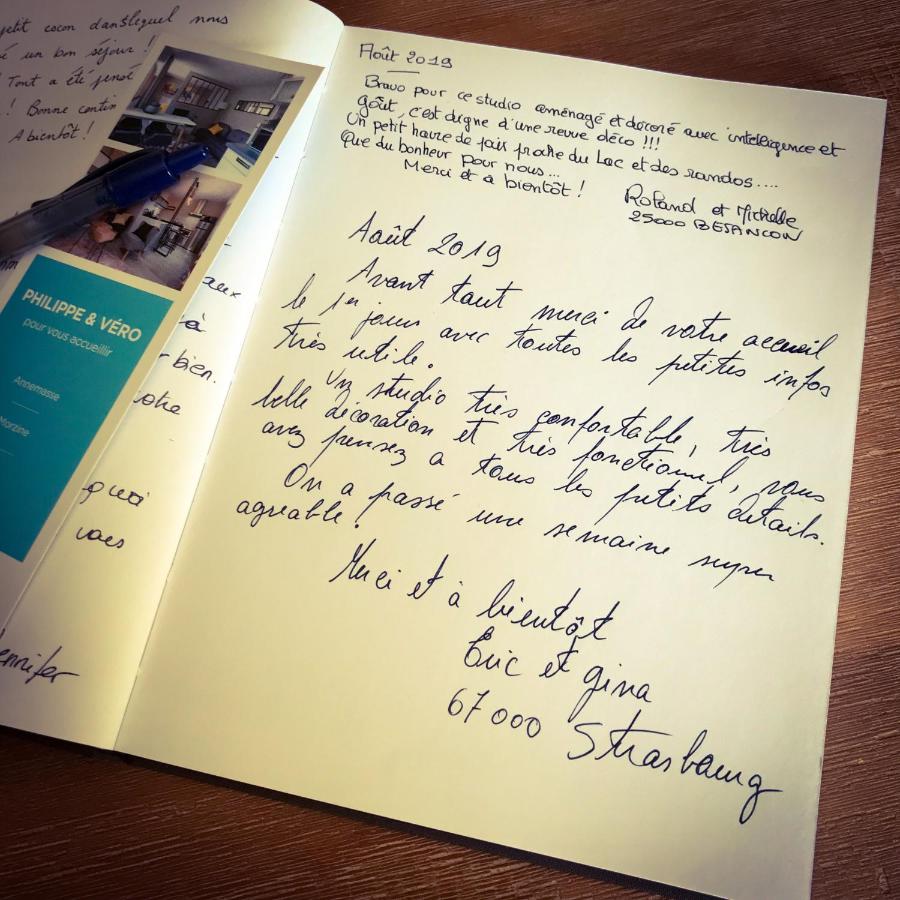 petit cocon dans lequel nous
é un bon séjour !
Tout a été pensé
! Bonne contin
A bientôt !
PHILIPPE & VÉRO
pour vous accueillir
Annemasse
Morzine
aux
à
bien.
otre
quoi
vous
ennifer
Août 2019
Bravo pour ce studio aménagé et décoré avec intelligence et
goût, c'est digne d'une revue déco !!!
Un petit havre de paix proche du Lac et des randos....
Que du bonheur pour nous...
Merci et à bientôt !
Roland et Michelle
25000 BESANCON
Août 2019
Avant tout merci de votre accueil
le 1er jour avec toutes les petites infos
très utile.
Un studio très confortable, très
belle décoration et très fonctionnel, vous
avez pensez a tous les petits détails.
On a passé une semaine super
agréable.
Merci et à bientôt
Eric et gina
67000 Strasbourg